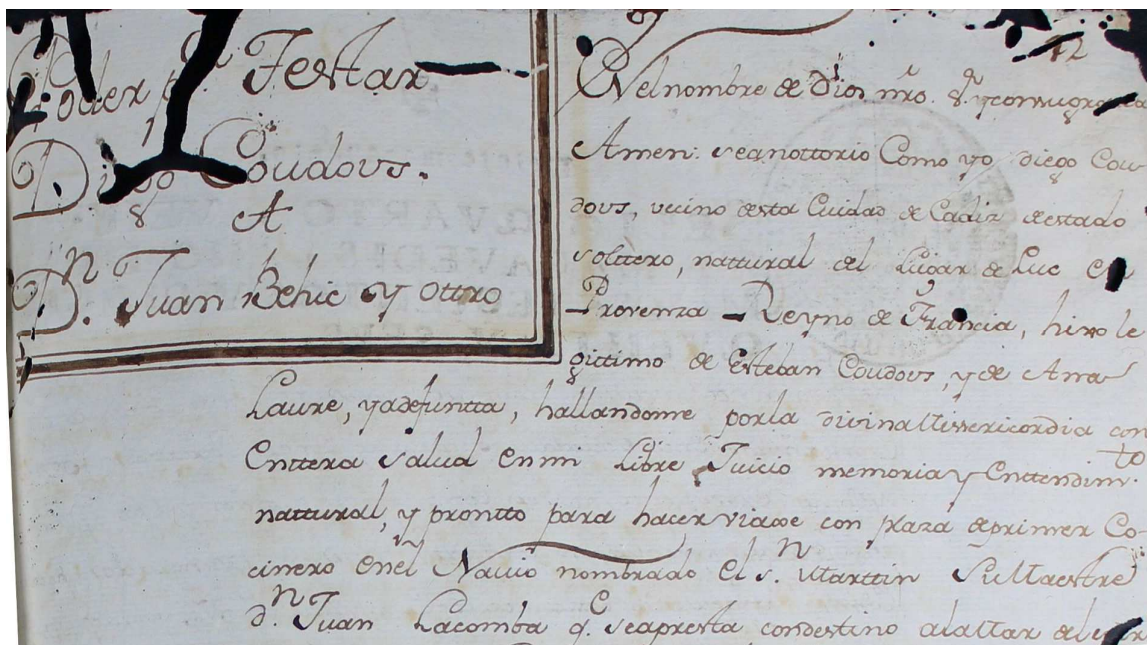 Poder pa. Testar
Diego Coudous.
A
Dn. Juan Behic y ottro
12
En el nombre de Dios nro. Sr. y con su gracia
Amen. sea nottorio Como yo Diego Cou
dous, vecino desta Ciudad de Cadiz de estado
solttero, nattural del Lugar de Luc en
Provenza Reyno de Francia, hixo le
gittimo de Esteban Coudous, y de Ana
Laure, ya defuntta, hallandome por la divina Missericordia con
Enttera salud en mi Libre Juicio memoria y Enttendimto.
nattural, y prontto para hacer viaxe con plaza de primer Co-
cinero en el Navio nombrado el Sn. Marttin su Maestre
dn. Juan Lacomba qe. se apresta con destino a la Mar del sur